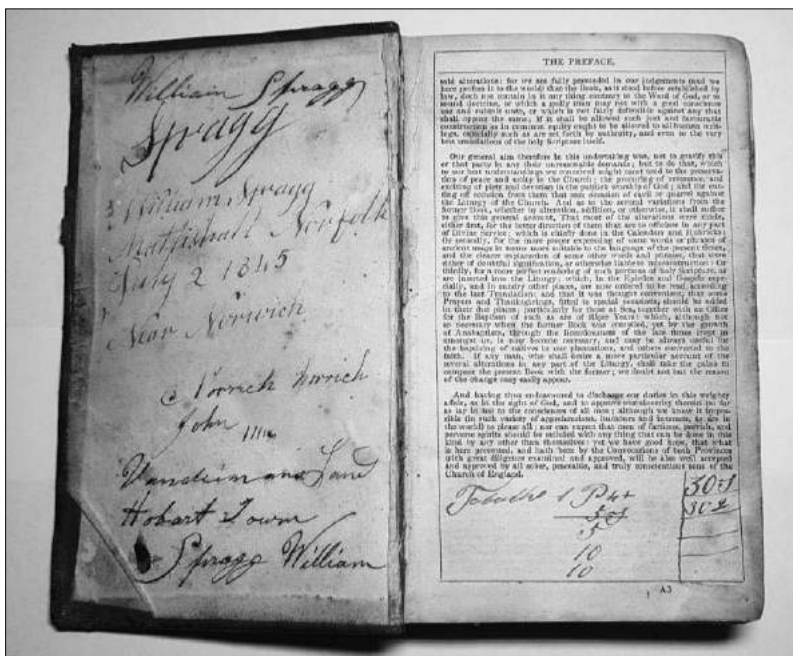 William Spragg
Spragg
William Spragg
Mattishall Norfolk
July 2 1845
Near Norwich
John
Hobart Town
Spragg William
THE PREFACE.
said alterations: for we are fully persuaded in our judgements (and we
here profess it to the world) that the Book, as it stood before established by
law, doth not contain in it any thing contrary to the Word of God, or to
sound doctrine, or which a godly man may not with a good conscience
use and submit unto, or which is not fairly defensible against any that
shall oppose the same; if it shall be allowed such just and favourable
construction as in common equity ought to be allowed to all human writ-
ings, especially such as are set forth by authority, and even to the very
best translations of the holy Scripture itself.
Our general aim therefore in this undertaking was, not to gratify this
or that party in any their unreasonable demands; but to do that, which
to our best understandings we conceived might most tend to the preserva-
tion of peace and unity in the Church; the procuring of reverence, and
exciting of piety and devotion in the publick worship of God; and the cut-
ting off occasion from them that seek occasion of cavil or quarrel against
the Liturgy of the Church. And as to the several variations from the
former Book, whether by alteration, addition, or otherwise, it shall suffice
to give this general account, That most of the alterations were made,
either first, for the better direction of them that are to officiate in any part
of Divine Service; which is chiefly done in the Calendars and Rubricks:
Or secondly, for the more proper expressing of some words or phrases of
ancient usage in terms more suitable to the language of the present times,
and the clearer explanation of some other words and phrases, that were
either of doubtful signification, or otherwise liable to misconstruction: Or
thirdly, for a more perfect rendering of such portions of holy Scripture, as
are inserted into the Liturgy; which, in the Epistles and Gospels espe-
cially, and in sundry other places, are now ordered to be read, according
to the last Translation: and that it was thought convenient, that some
Prayers and Thanksgivings, fitted to special occasions, should be added
in their due places; particularly for those at Sea, together with an Office
for the Baptism of such as are of Riper Years: which, although not
so necessary when the former Book was compiled, yet by the growth
of Anabaptism, through the licentiousness of the late times crept in
amongst us, is now become necessary, and may be always useful for
the baptizing of natives in our plantations, and others converted to the
faith. If any man, who shall desire a more particular account of the
several alterations in any part of the Liturgy, shall take the pains to
compare the present Book with the former; we doubt not but the reason
of the change may easily appear.
And having thus endeavoured to discharge our duties in this weighty
affair, as in the sight of God, and to approve our sincerity therein (so far
as lay in us) to the consciences of all men; although we know it impos-
sible (in such variety of apprehensions, humours and interests, as are in
the world) to please all; nor can expect that men of factious, peevish, and
perverse spirits should be satisfied with any thing that can be done in this
kind by any other than themselves: yet we have good hope, that what
is here presented, and hath been by the Convocations of both Provinces
with great diligence examined and approved, will be also well accepted
and approved by all sober, peaceable, and truly conscientious sons of the
Church of England.
30
30
10
10
A3